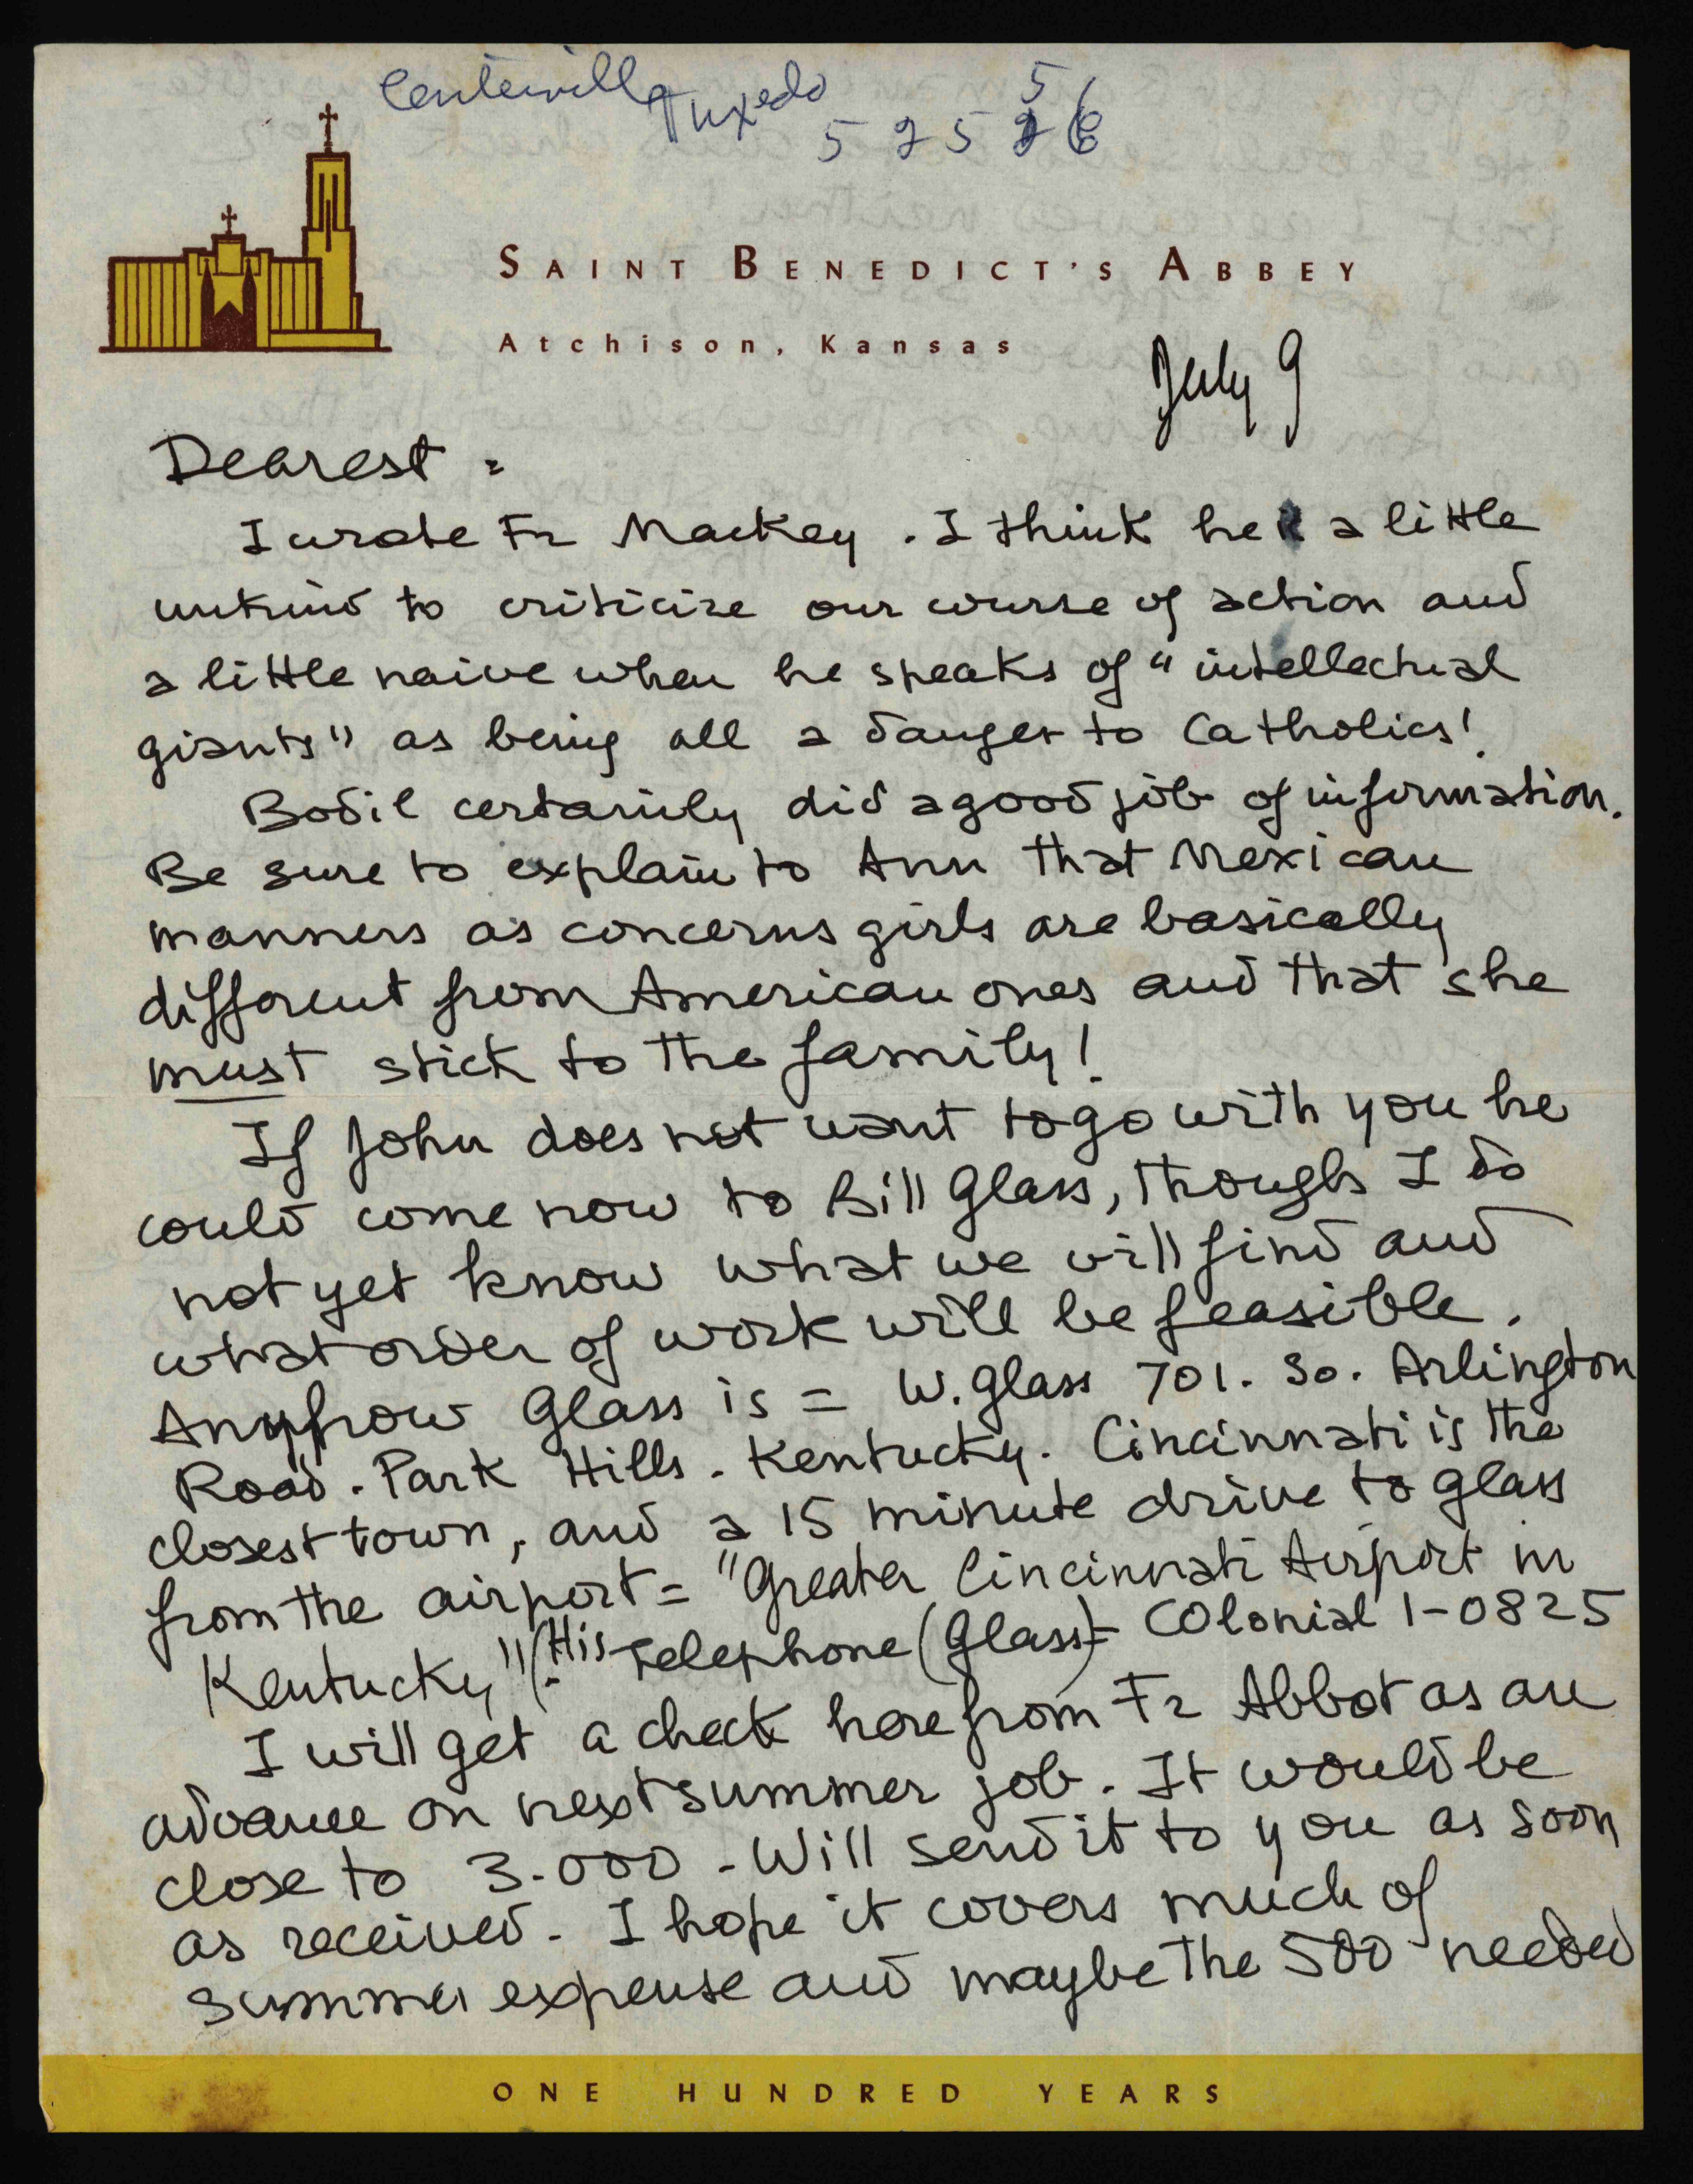 Centerville
Tuxedo
5 2 5 5 6
SAINT BENEDICT'S ABBEY
Atchison, Kansas
July 9
Dearest =
I wrote Fr Mackey. I think he is a little
unkind to criticize our course of action and
a little naive when he speaks of "intellectual
giants" as being all a danger to Catholics!
Bodil certainly did a good job of information.
Be sure to explain to Ann that Mexican
manners as concerns girls are basically
different from American ones and that she
must stick to the family!
If John does not want to go with you he
could come now to Bill Glass, though I do
not yet know what we will find and
what order of work will be feasible.
Anyhow Glass is = W. Glass 701. So. Arlington
Road. Park Hills. Kentucky. Cincinnati is the
closest town, and a 15 minute drive to Glass
from the airport = "Greater Cincinnati Airport in
Kentucky". (His Telephone (Glass) = COlonial 1-0825
I will get a check here from Fr Abbot as an
advance on next summer job. It would be
close to 3.000 - Will send it to you as soon
as received. I hope it covers much of
summer expense and maybe the 500 needed
ONE HUNDRED YEARS